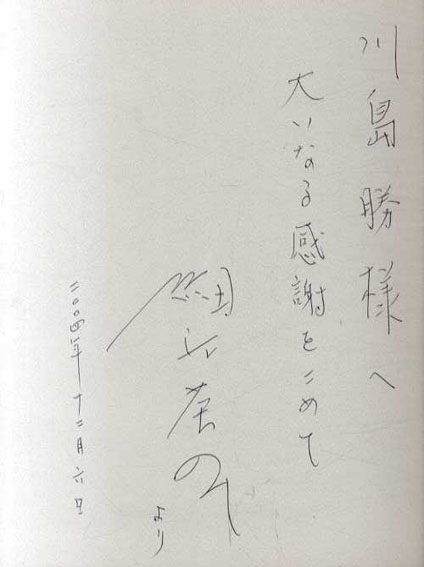 川島勝様へ
大いなる感謝をこめて
細江英公
より
二〇〇四年十二月六日